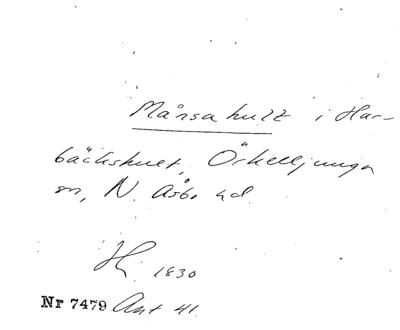 Månsahult i Har-
bäckshult, Örkelljunga
sn, N. Åsbo hd
H 1830
Nr 7479 Ant 41